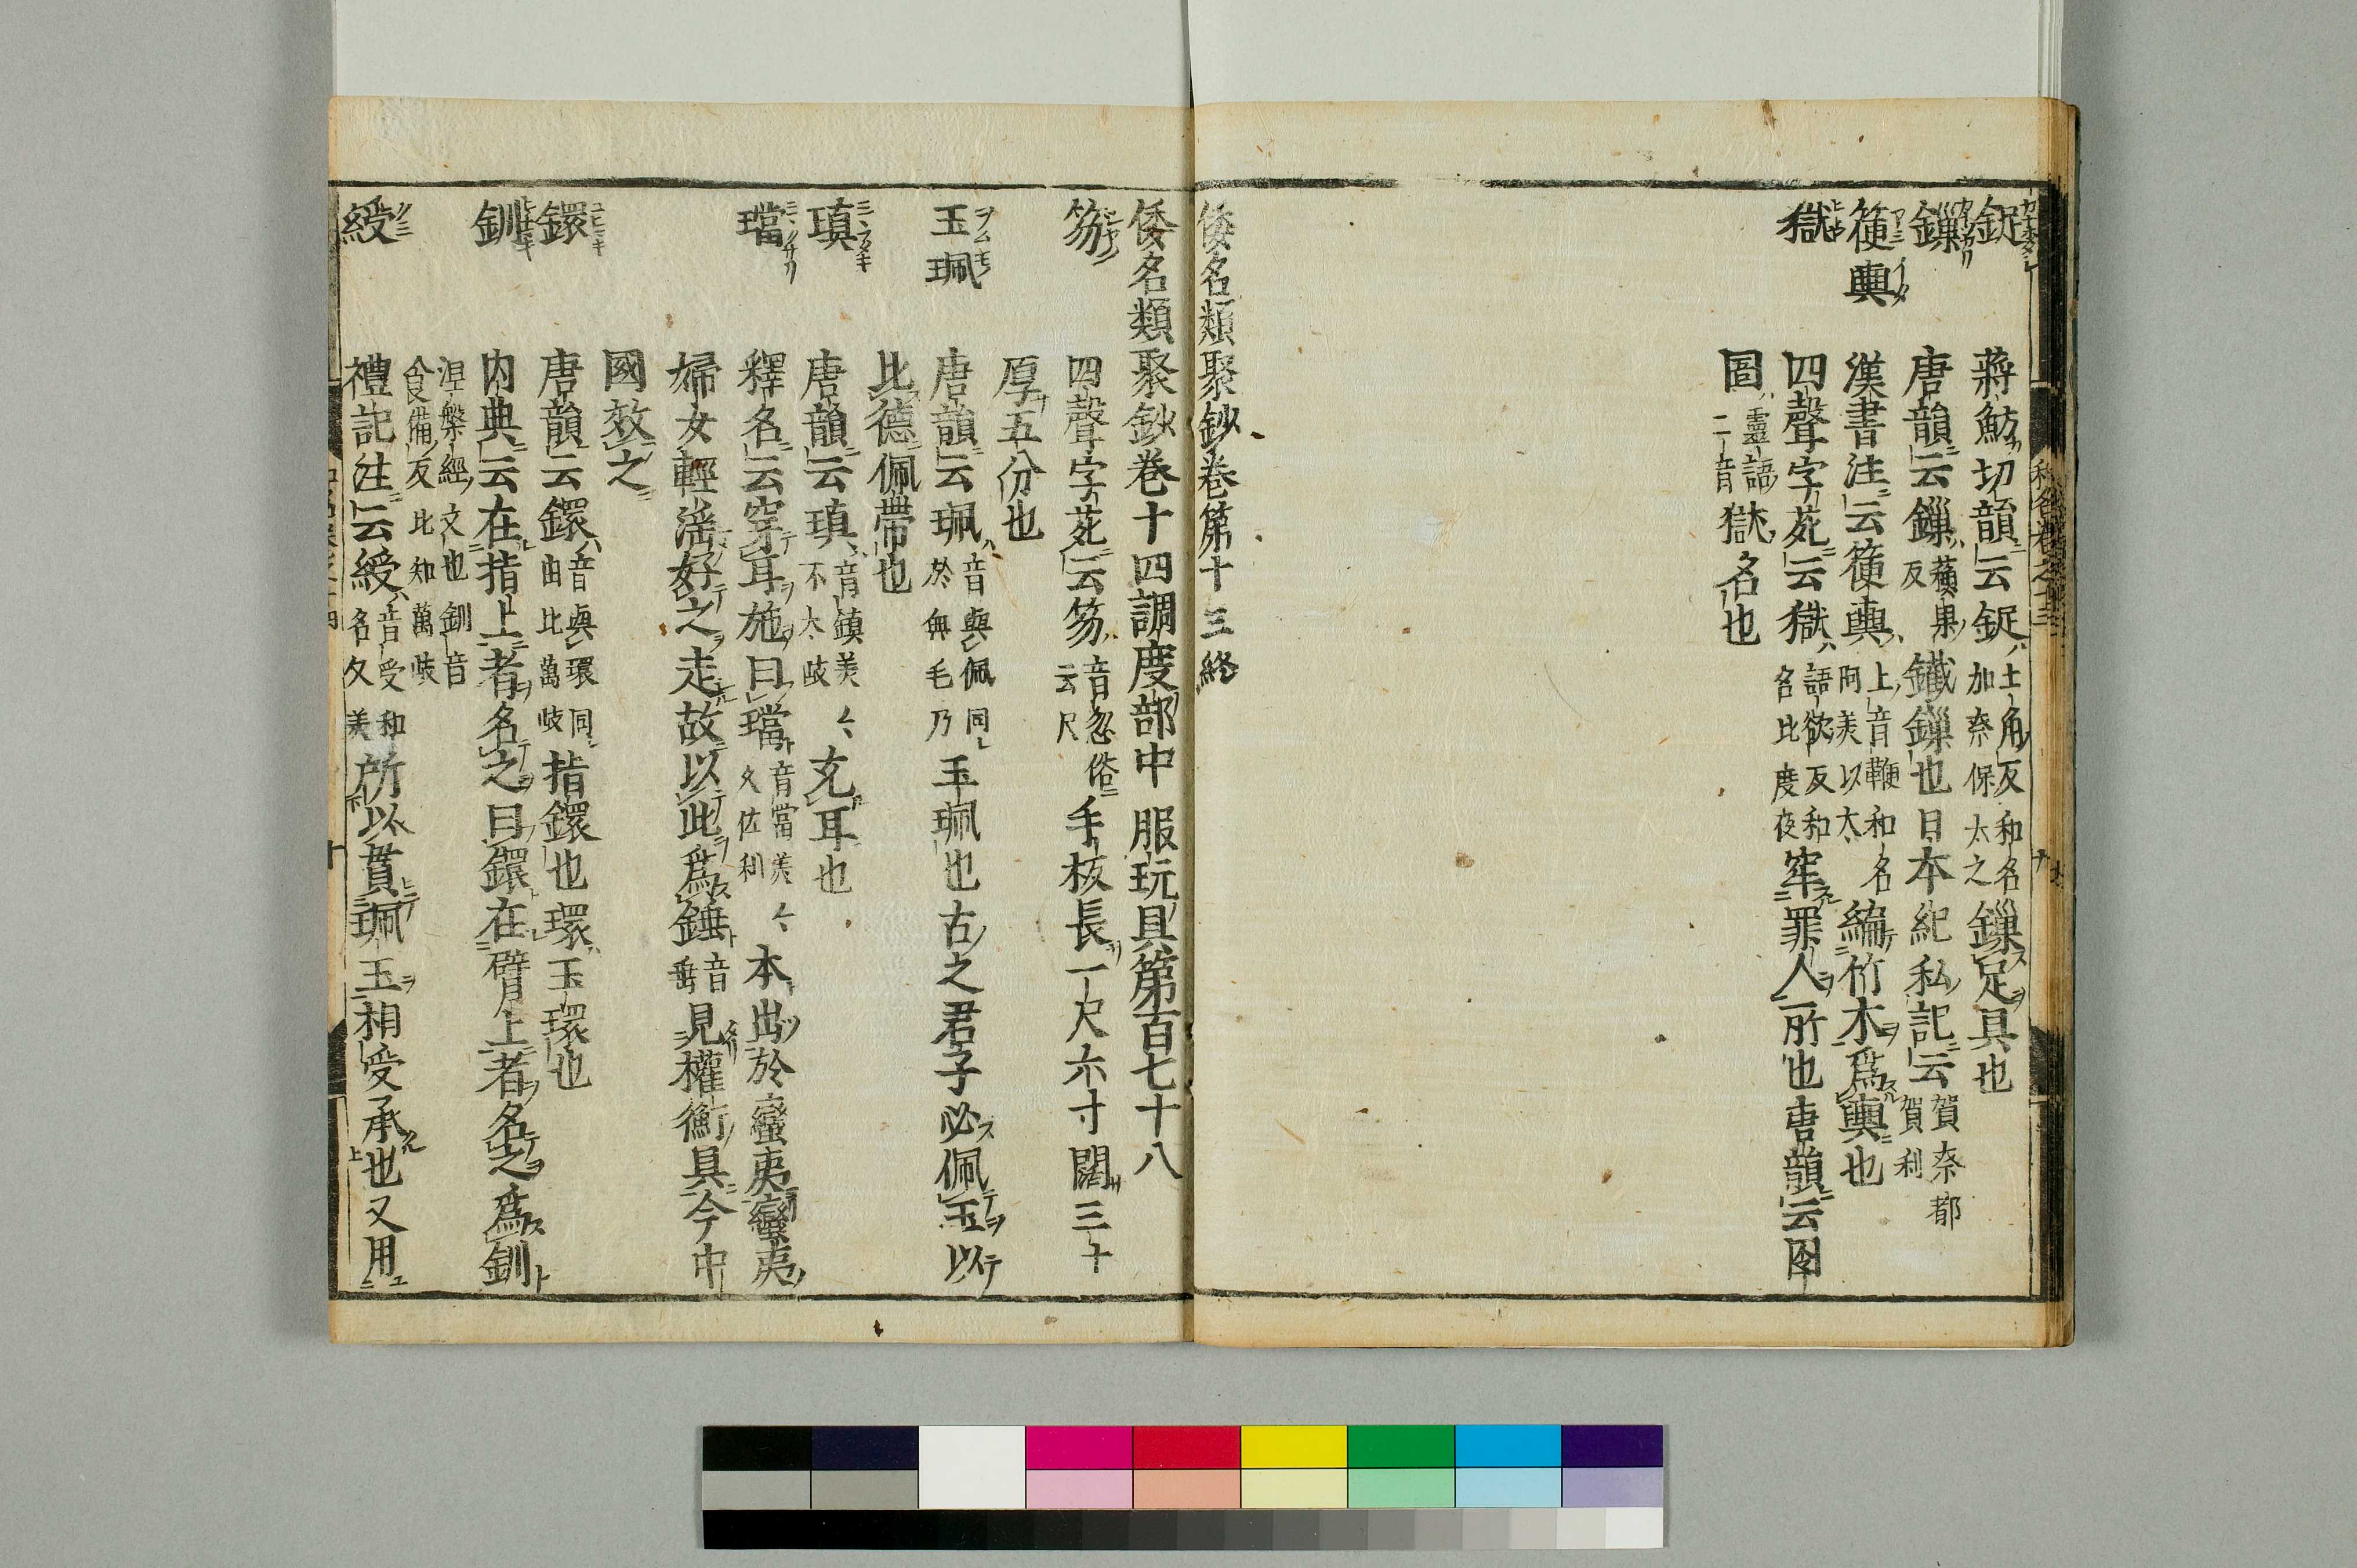 鋜 蔣魴切韻云鋜土角反和名加奈保太之鏁足具也
鏁 唐韻云鏁蘓果反鐵鏁也日本紀私記云賀奈都賀利
箯輿 漢書注云箯輿上音鞭和名阿美以太編竹木爲輿也
獄 四聲字苑云獄語欲反和名比度夜牢罪人所也唐韻云囹
圄靈語二音獄名也
倭名類聚鈔卷第十三終
倭名類聚鈔卷十四調度部中 服玩具第百七十八
笏 四聲字苑云笏音忽俗云尺手板長一尺六寸闊三寸
厚五分也
玉珮 唐韻云珮音與佩同於無毛乃玉珮也古之君子必佩玉以
比德佩帶也
瑱 唐韻云瑱音鎮美々不太岐充耳也
璫 釋名云穿耳施曰璫音當美々久佐利本出於蠻夷蠻夷
婦女輕淫好之走故以此爲錘音垂見權衡具今中
國效之
鐶 唐韻云鐶音與環同由比萬岐指鐶也環玉環也
釧 內典云在指上者名之曰鐶在臂上者名之爲釧
涅槃經文也釧音
食備反比知萬岐
綬 禮記注云綬音受和名久美所以貫珮玉相受承也又用